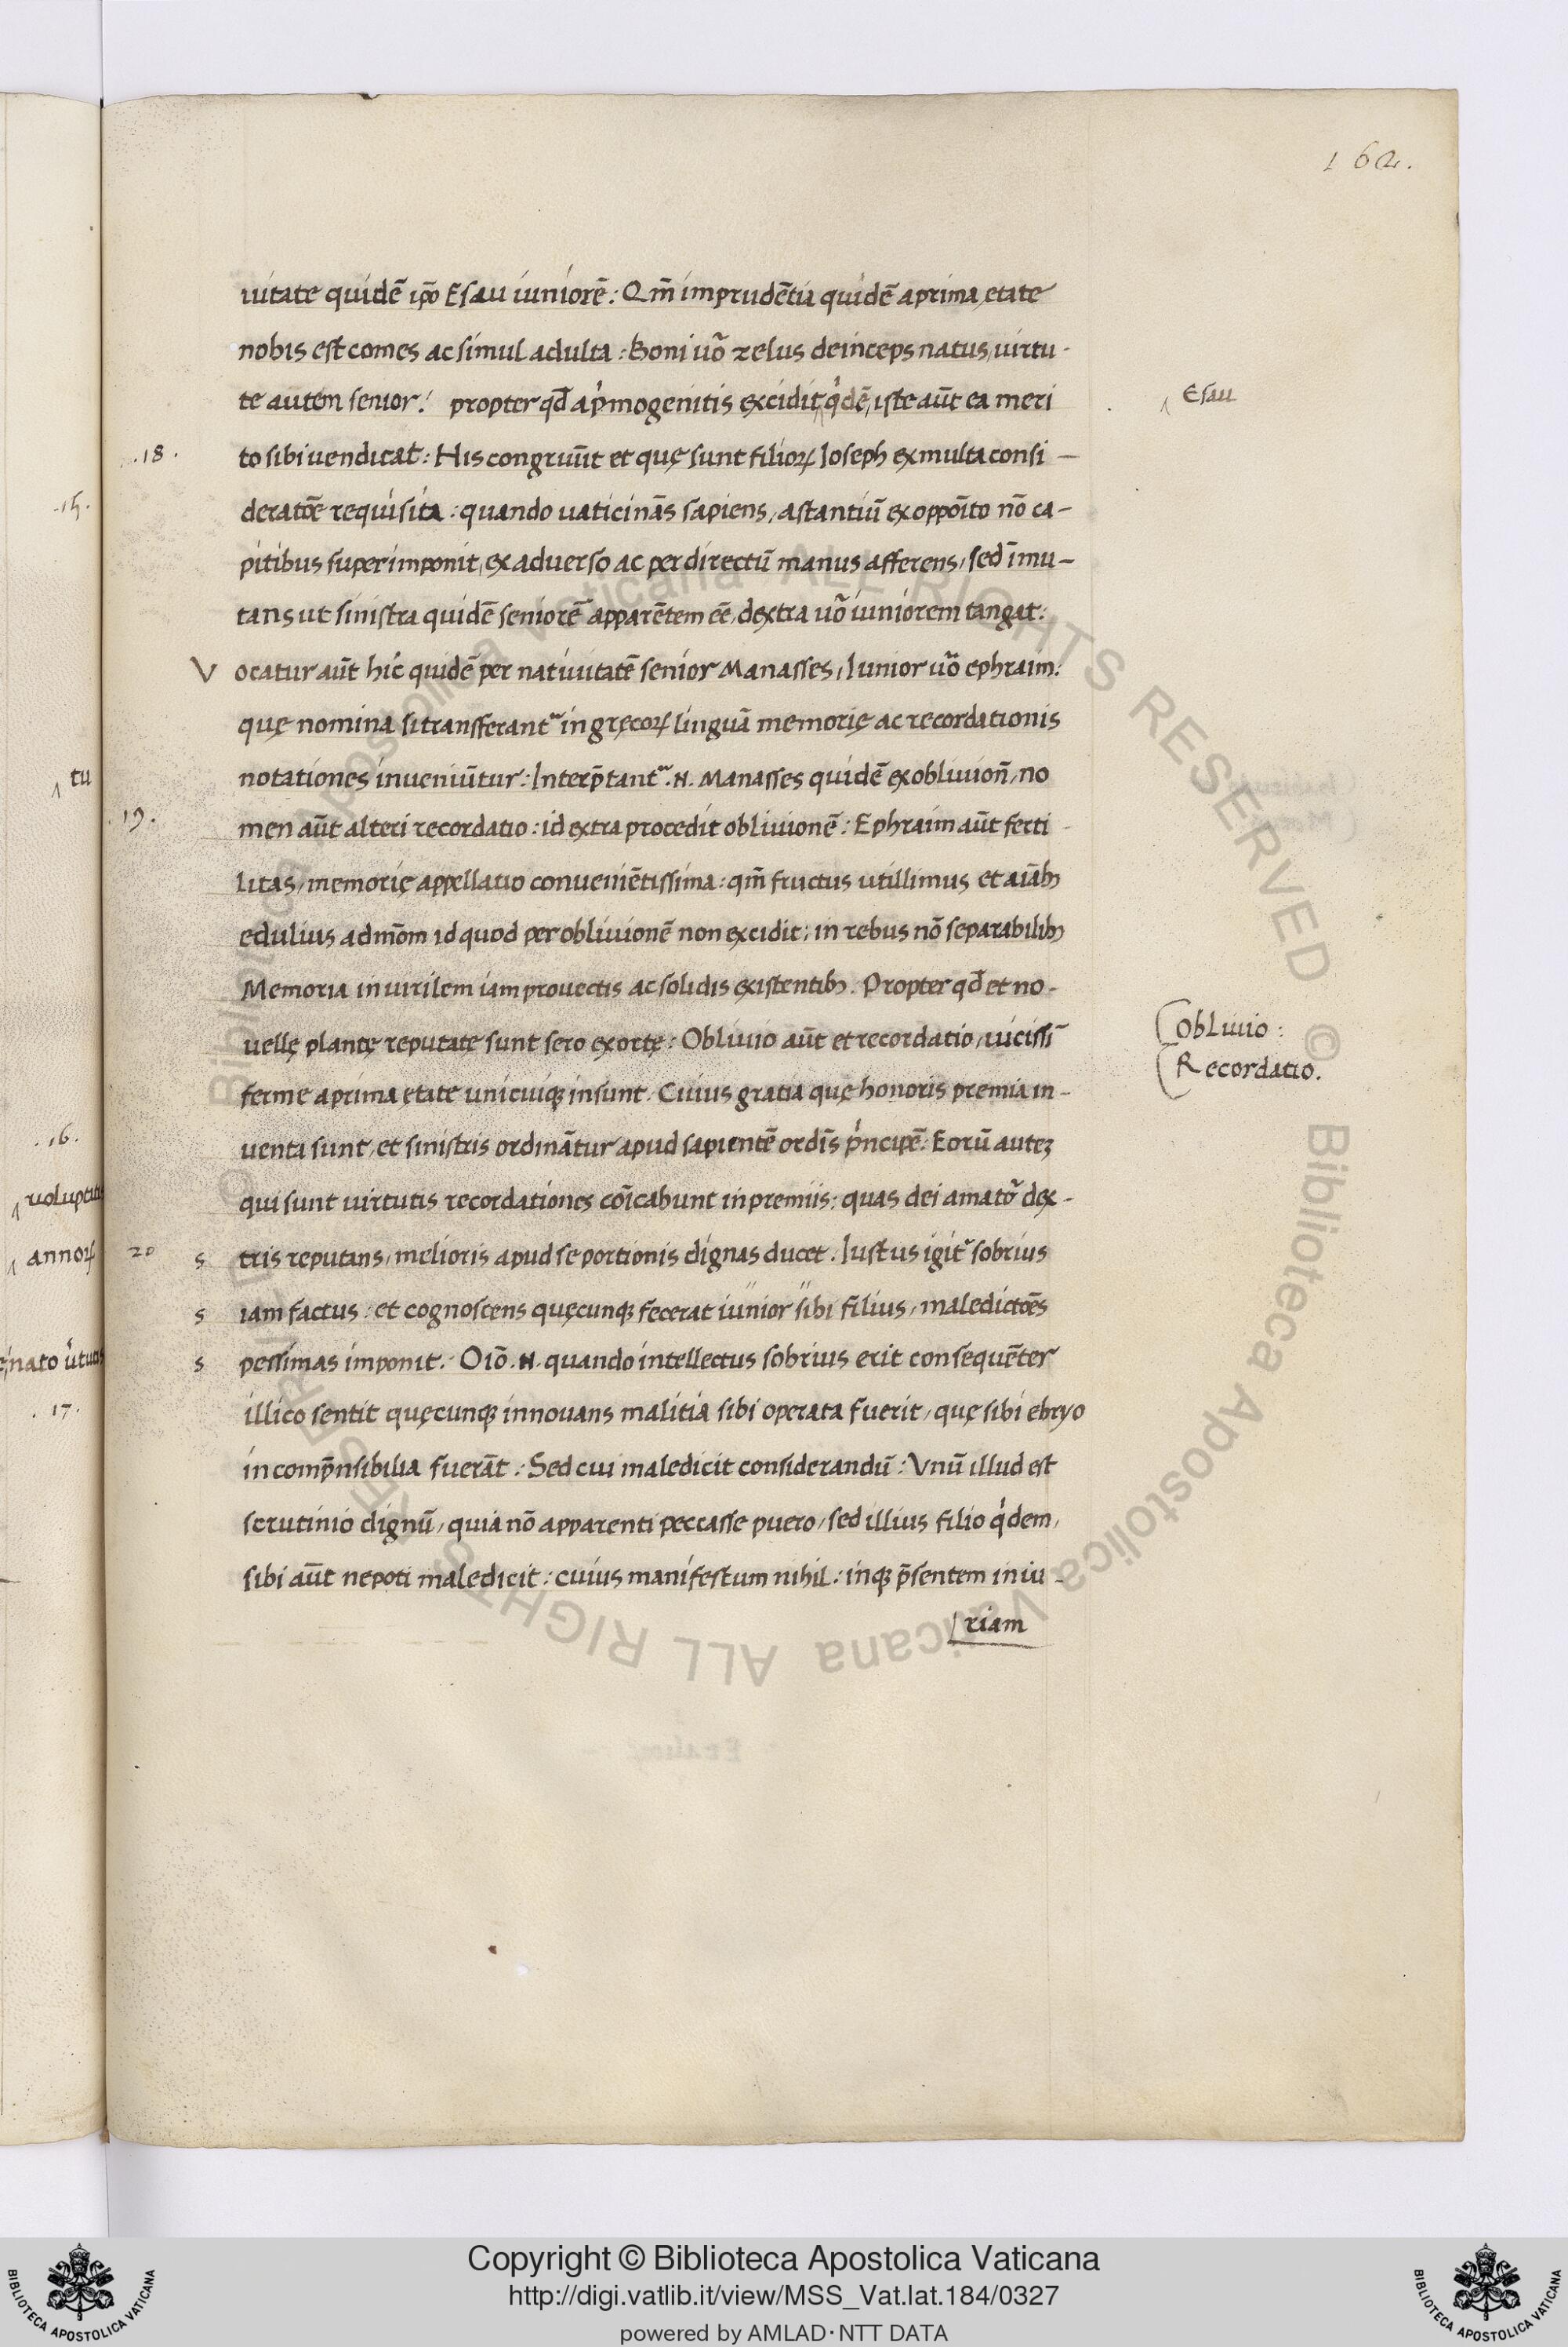 162.
uitate quidē ip̄o Esau iuniorē: Qm̄ imprudētia quidē a prima ętate
nobis est comes ac simul adulta: Boni uō zelus deinceps natus, uirtu-
te autem senior: propter qd̄ a p'mogenitis excidit ‸ q'dē, iste aūt ea meri
‸ Esau
.18. to sibi uendicat: His congruūt et quę sunt filioꝝ Ioseph ex multa consi-
deratōe requisita: quando uaticinās sapiens, astantiū ex oppoīto nō ca-
pitibus superimponit, ex aduerso ac per directū manus afferens, sed īmu-
tans ut sinistra quidē seniorē apparētem eē, dextra uō iuniorem tangat:
Vocatur aūt hic quidē per natiuitatē senior Manasses, Iunior uō ephraim:
quę nomina si transferant᷑ in gręcoꝝ linguā memorię ac recordationis
notationes inueniūtur: Interp̄tant᷑ .N. Manasses quidē ex obliuion̄, no
.19. men aūt alteri recordatio: id extra procedit obliuionē: Ephraim aūt ferti-
litas, memorię appellatio conueniētissima: qm̄ fructus utillimus et aiābꝫ
edulius ad mōm id quod per obliuionē non excidit: in rebus nō separabilibꝫ
Memoria in uirilem iam prouectis ac solidis existentibꝫ. Propter qd̄ et no-
uellę plantę reputate sunt sero exortę: Obliuio aūt et recordatio, uicissī
(Obliuio:
(Recordatio.
ferme a prima ętate unicuiqꝫ insunt. Cuius gratia quę honoris premia in-
uenta sunt, et sinistris ordinātur apud sapientē ordīs p'ncipē: Eorū autez
qui sunt uirtutis recordationes cōicabunt in premiis: quas dei amator dex-
20 s tris reputans, melioris apud se portionis dignas ducet. Iustus igit᷑ sobrius
s iam factus: et cognoscens quęcunqꝫ fecerat iunior sibi filius, maledictōēs
s pessimas imponit. Oiō .N. quando intellectus sobrius erit consequēter
illico sentit quęcunqꝫ innouans malitia sibi operata fuerit, quę sibi ebryo
incomp̄nsibilia fuerāt: Sed cui maledicit considerandū: Vnū illud est
scrutinio dignū, quia nō apparenti peccasse puero, sed illius filio q'dem,
sibi aūt nepoti maledicit: cuius manifestum nihil: inqꝫ p̄sentem iniu-
riam
.15.
‸ tu
.16.
‸ annoꝝ
.17.
© Biblioteca Apostolica Vaticana ALL RIGHTS RESERVED © Biblioteca Apostolica Vaticana ALL RIGHTS RESERVED
Copyright © Biblioteca Apostolica Vaticana
http://digi.vatlib.it/view/MSS_Vat.lat.184/0327
powered by AMLAD·NTT DATA
BIBLIOTECA APOSTOLICA VATICANA
BIBLIOTECA APOSTOLICA VATICANA